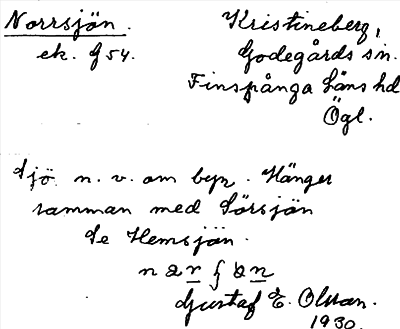 Norrsjön.
ek. J 54.
Kristineberg,
Godegårds sn.
Finspånga läns hd
Ögl.
Sjö n. v. om byn. Hänger
samman med Sörsjön
Se Hemsjön.
Gustaf E. Olsson.
1930.